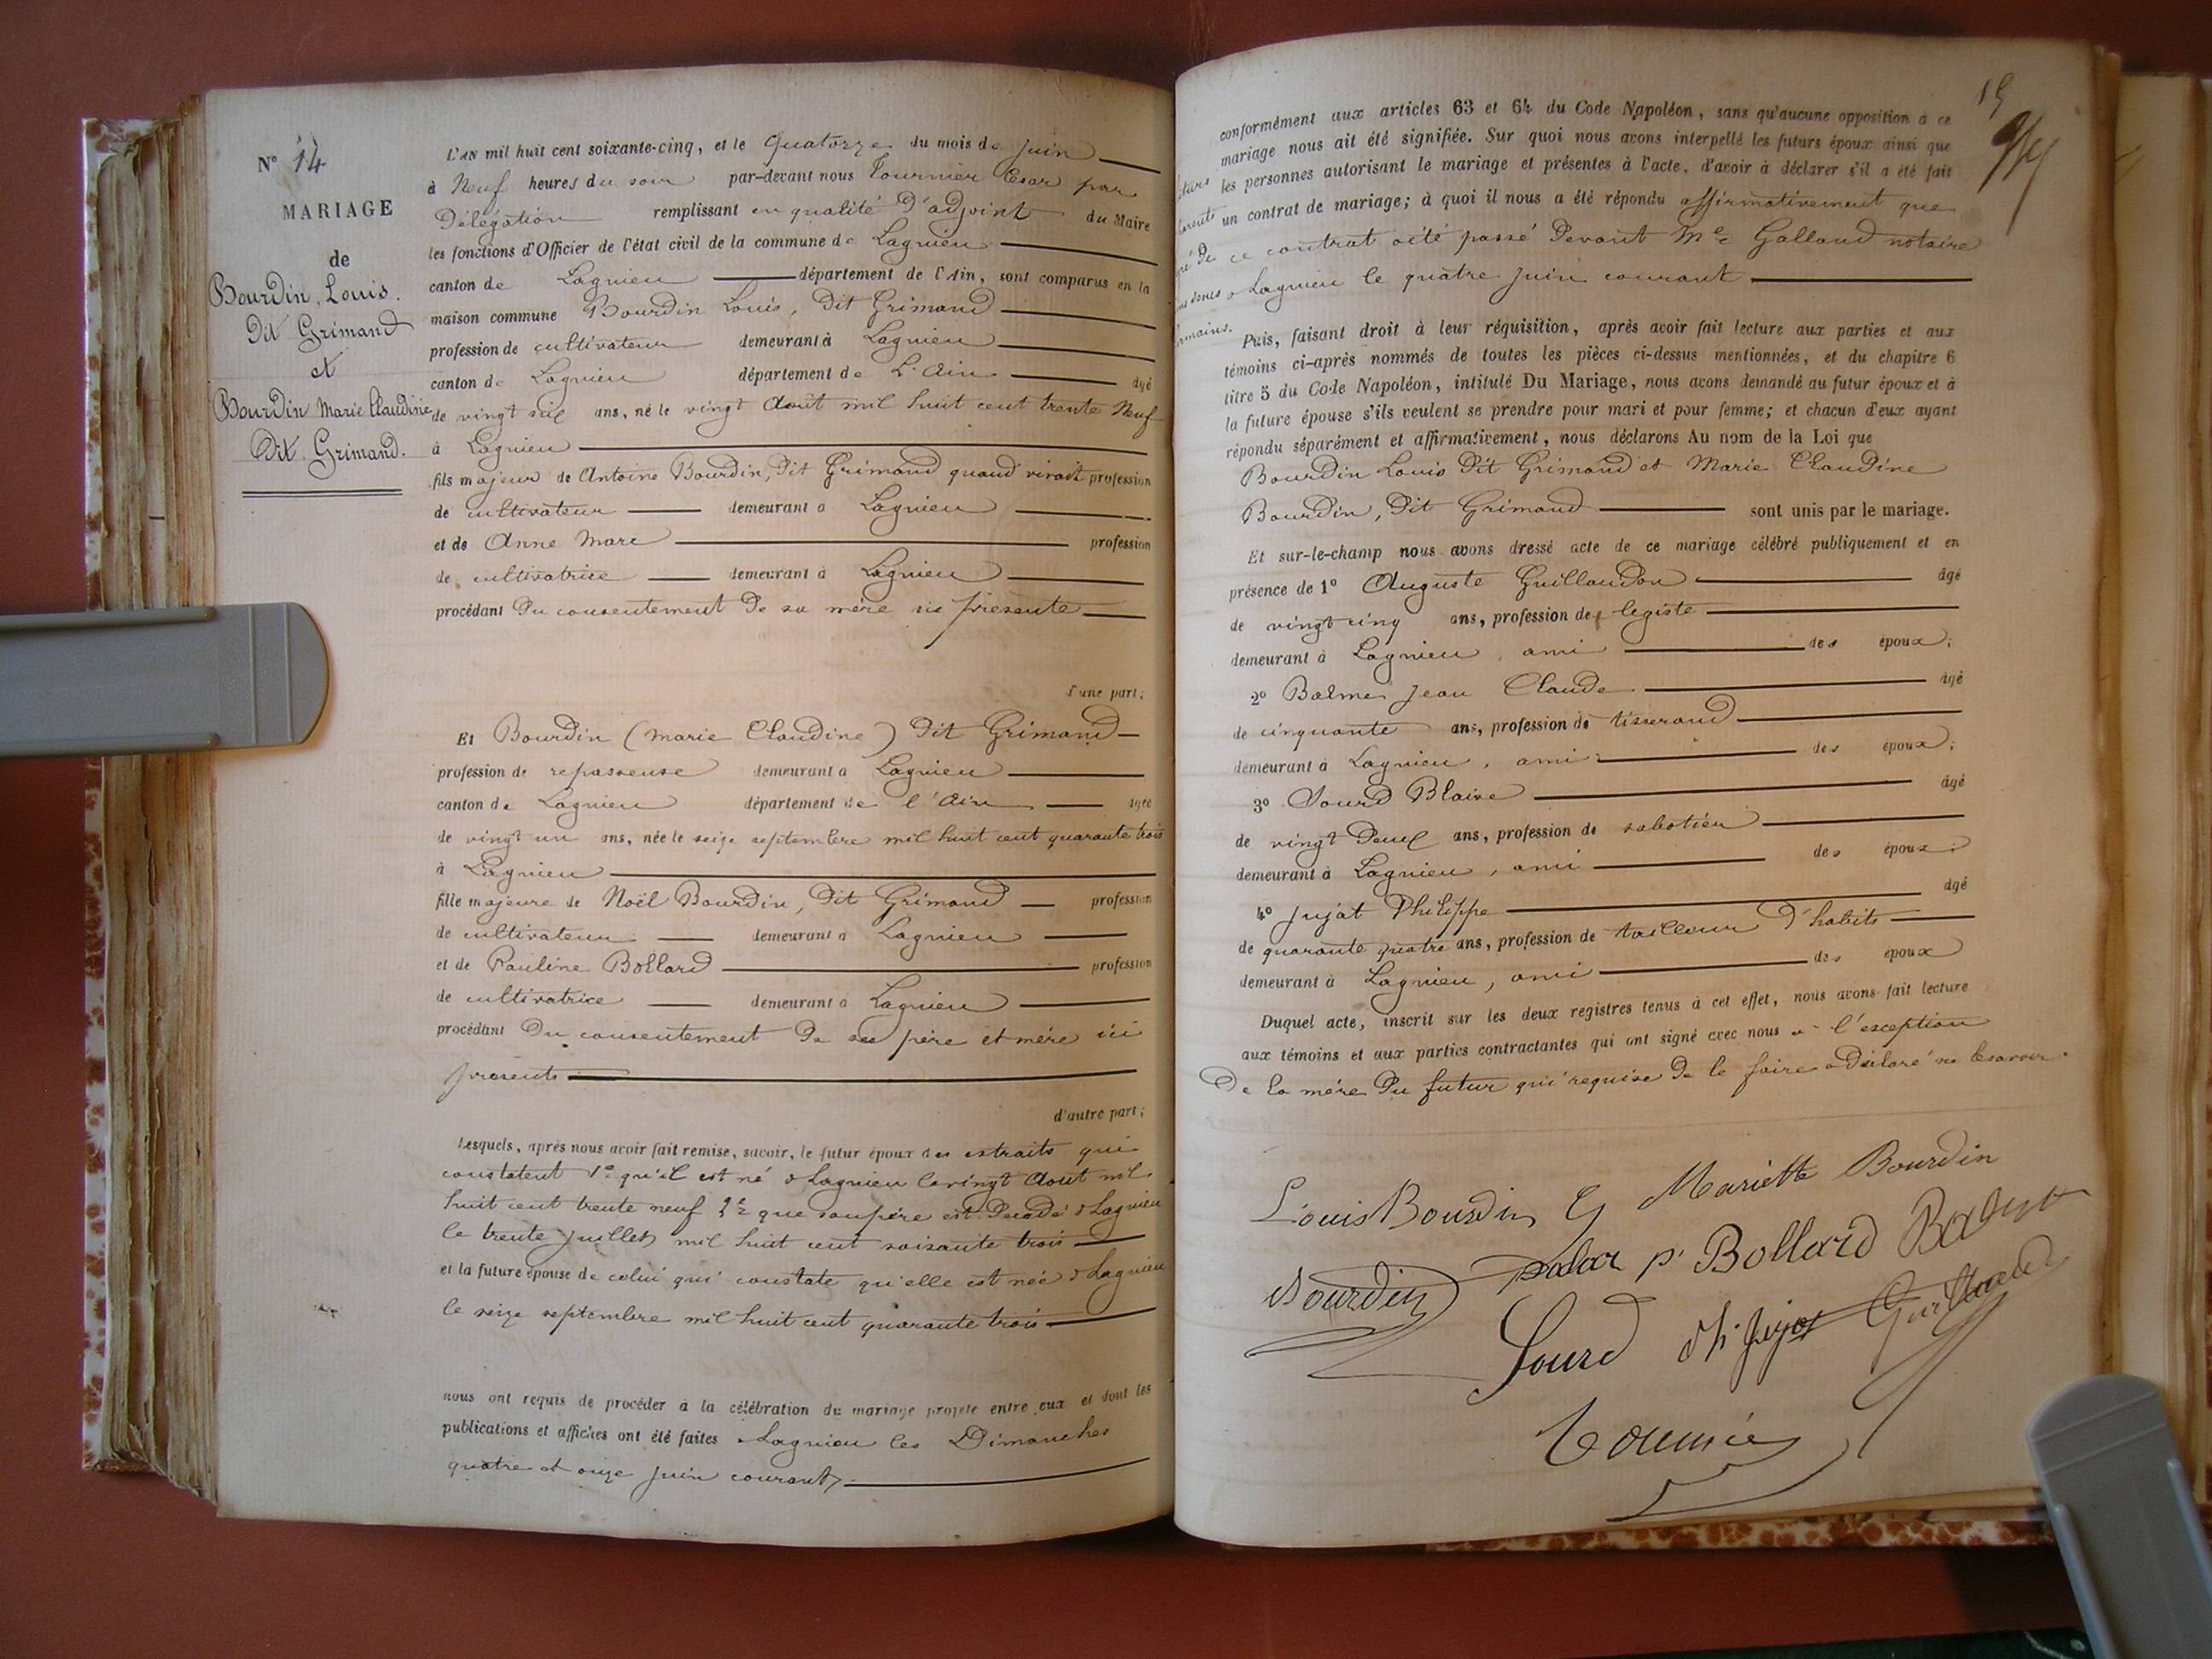 N° 14
MARIAGE
de
Bourdin, Louis.
Dit Grimand
et
Bourdin Marie Claudine
Dit Grimand.
L'AN mil huit cent soixante-cinq, et le Quatorze du mois de juin
à Neuf heures du soir par-devant nous Tournier Cesar par
Délégation remplissant en qualité D'adjoint du Maire
les fonctions d'Officier de l'état civil de la commune de Lagnieu
canton de Lagnieu département de l'Ain, sont comparus en la
maison commune Bourdin Louis, Dit Grimand
profession de cultivateur demeurant à Lagnieu
canton de Lagnieu département de L'Ain âgé
de vingt six ans, né le vingt Aout mil huit cent trente Neuf
à Lagnieu
fils majeur de Antoine Bourdin, Dit Grimand quand vivait profession
de cultivateur demeurant à Lagnieu
et de Anne Mare profession
de cultivatrice demeurant à Lagnieu
procédant Du consentement De sa mère ici présente
d'une part;
Et Bourdin (Marie Claudine) Dit Grimand
profession de repasseuse demeurant à Lagnieu
canton de Lagnieu département de l'Ain âgée
de vingt un ans, née le seize septembre mil huit cent quarante trois
à Lagnieu
fille majeure de Noël Bourdin, Dit Grimand profession
de cultivateur demeurant à Lagnieu
et de Pauline Bollard profession
de cultivatrice demeurant à Lagnieu
procédant Du consentement De ses père et mère ici
présents
d'autre part;
Lesquels, après nous avoir fait remise, savoir, le futur époux des extraits qui
constatent 1° qu'il est né à Lagnieu le vingt Aout mil
huit cent trente neuf 2° que son père est Décédé à Lagnieu
le trente juillet mil huit cent soixante trois
et la future épouse de celui qui constate qu'elle est née à Lagnieu
le seize septembre mil huit cent quarante trois
nous ont requis de procéder à la célébration du mariage projeté entre eux et dont les
publications et affiches ont été faites à Lagnieu les Dimanches
quatre et onze juin courant
15
conformément aux articles 63 et 64 du Code Napoléon, sans qu'aucune opposition à ce
mariage nous ait été signifiée. Sur quoi nous avons interpellé les futurs époux ainsi que
les personnes autorisant le mariage et présentes à l'acte, d'avoir à déclarer s'il a été fait
un contrat de mariage; à quoi il nous a été répondu affirmativement que
ce contrat a été passé Devant Me Galland notaire
à Lagnieu le quatre juin courant
Puis, faisant droit à leur réquisition, après avoir fait lecture aux parties et aux
témoins ci-après nommés de toutes les pièces ci-dessus mentionnées, et du chapitre 6
titre 5 du Code Napoléon, intitulé Du Mariage, nous avons demandé au futur époux et à
la future épouse s'ils veulent se prendre pour mari et pour femme; et chacun d'eux ayant
répondu séparément et affirmativement, nous déclarons Au nom de la Loi que
Bourdin Louis Dit Grimand et Marie Claudine
Bourdin, Dit Grimand sont unis par le mariage.
Et sur-le-champ nous avons dressé acte de ce mariage célébré publiquement et en
présence de 1° Auguste Guillaudon âgé
de vingt cinq ans, profession de legiste
demeurant à Lagnieu, ami des époux;
2° Balme Jean Claude âgé
de cinquante ans, profession de tisserand
demeurant à Lagnieu, ami des époux;
3° Sourd Blaise âgé
de vingt Deux ans, profession de sabotier
demeurant à Lagnieu, ami des époux;
4° Jujat Philippe âgé
de quarante quatre ans, profession de tailleur D'habits
demeurant à Lagnieu, ami des époux
Duquel acte, inscrit sur les deux registres tenus à cet effet, nous avons fait lecture
aux témoins et aux parties contractantes qui ont signé avec nous à l'exception
De la mère Du futur qui requise De le faire a Déclaré ne le savoir.
Louis Bourdin Mariette Bourdin
Bourdin p. Bollard
Sourd Ph. Jujat